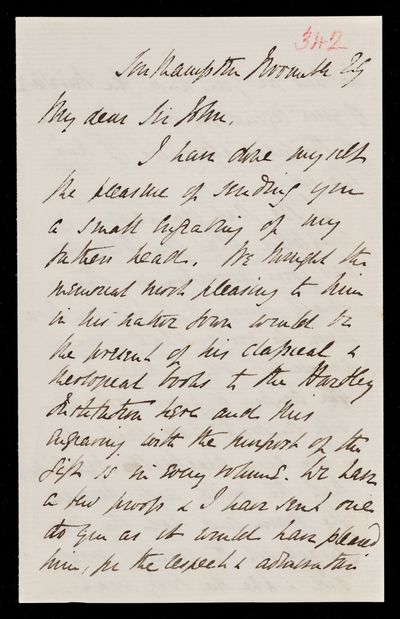 342
Southampton Novemb 29
My dear Sir John,
I have done myself
the pleasure of sending you
a small Engraving of my
fathers head. We thought the
memorial most pleasing to him
in his native Town would be
the present of his classical &
theological books to the Hartley
Institution here and this
engraving with the purport of the
gift is in every volume. We have
a few proofs & I have sent one
to you as it would have pleased
him, for the respect & admiration